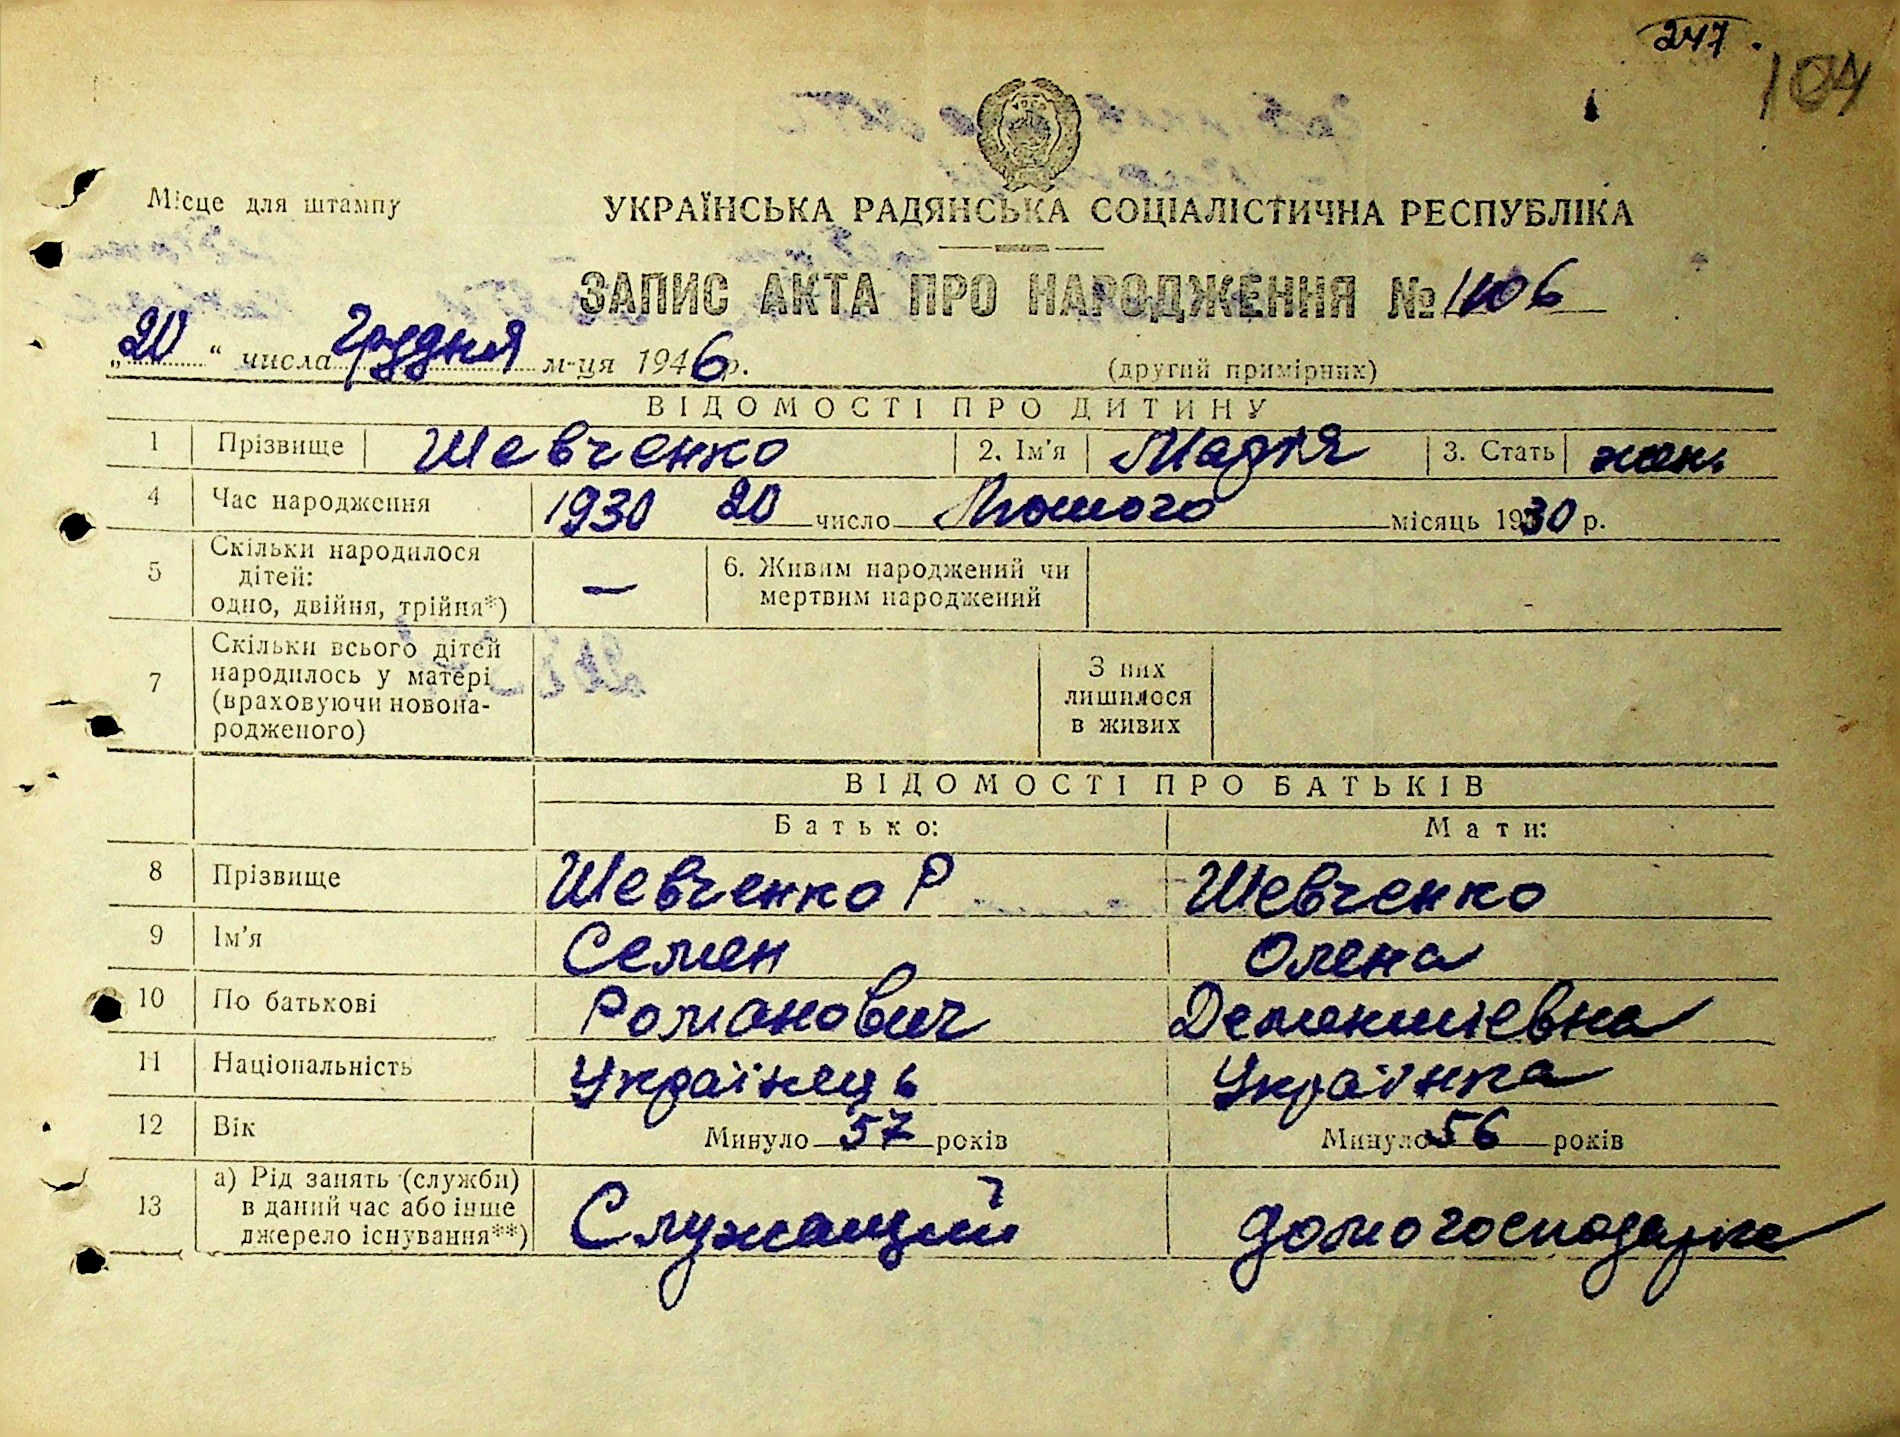 247.
104
Місце для штампу
УКРАЇНСЬКА РАДЯНСЬКА СОЦІАЛІСТИЧНА РЕСПУБЛІКА
ЗАПИС АКТА ПРО НАРОДЖЕННЯ № 1106
„20“ числа Грудня м-ця 1946 р.
(другий примірник)
ВІДОМОСТІ ПРО ДИТИНУ
1 Прізвище Шевченко 2. Ім'я Марія 3. Стать жен.
4 Час народження 1930 20 число Лютого місяць 1930 р.
5 Скільки народилося
дітей:
одно, двійня, трійня*) —
6. Живим народжений чи
мертвим народжений
7 Скільки всього дітей
народилось у матері
(враховуючи новона-
родженого)
З них
лишилося
в живих
ВІДОМОСТІ ПРО БАТЬКІВ
Батько: Мати:
8 Прізвище Шевченко Р Шевченко
9 Ім'я Семен Олена
10 По батькові Романович
11 Національність Українець Українка
12 Вік Минуло 57 років Минуло 56 років
13 а) Рід занять (служби)
в даний час або інше
джерело існування**) Служащий домогосподарка